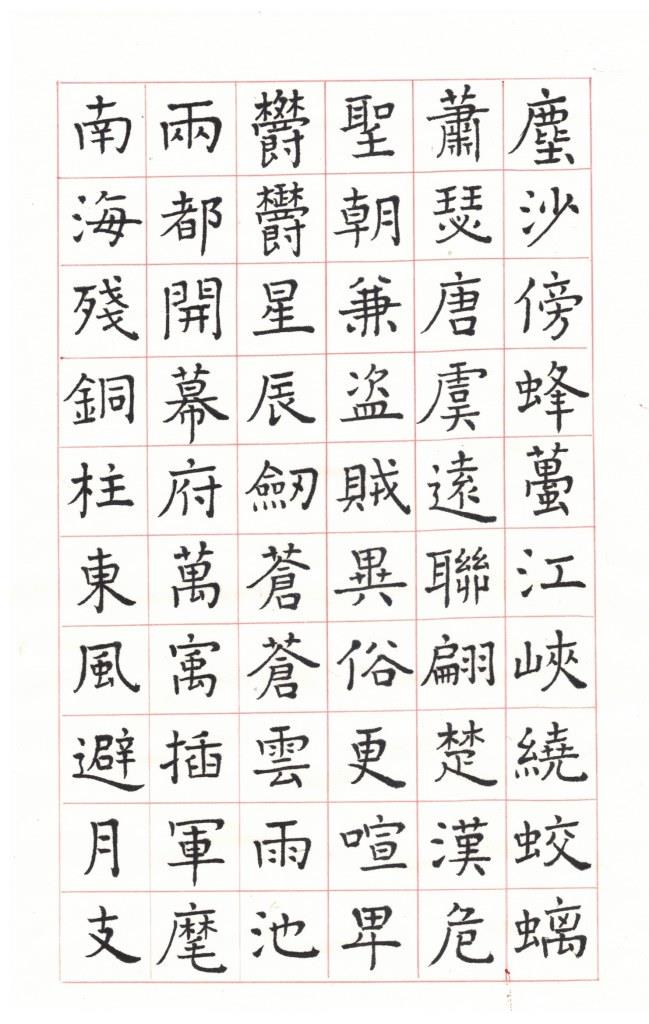 塵沙傍蜂蠆江峽繞蛟螭
蕭瑟唐虞遠聯翩楚漢危
聖朝兼盜賊異俗更喧卑
欝欝星辰劒蒼蒼雲雨池
兩都開幕府萬寓插軍麾
南海殘銅柱東風避月支